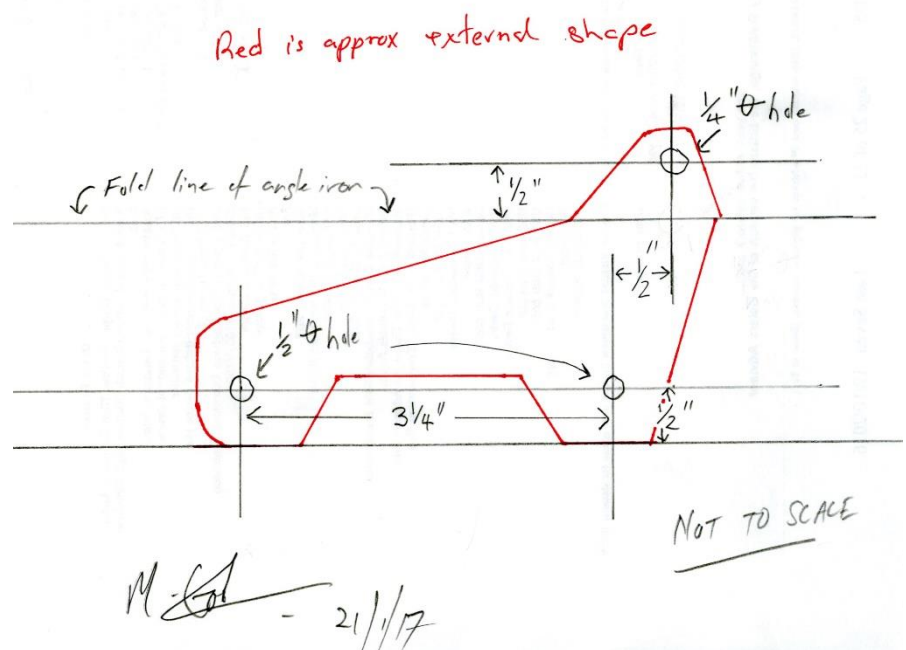 Red is approx external shape
1/4" θ hole
Fold line of angle iron
1/2"
1/2"
1/2" θ hole
3 1/4"
1/2"
NOT TO SCALE
21/1/17